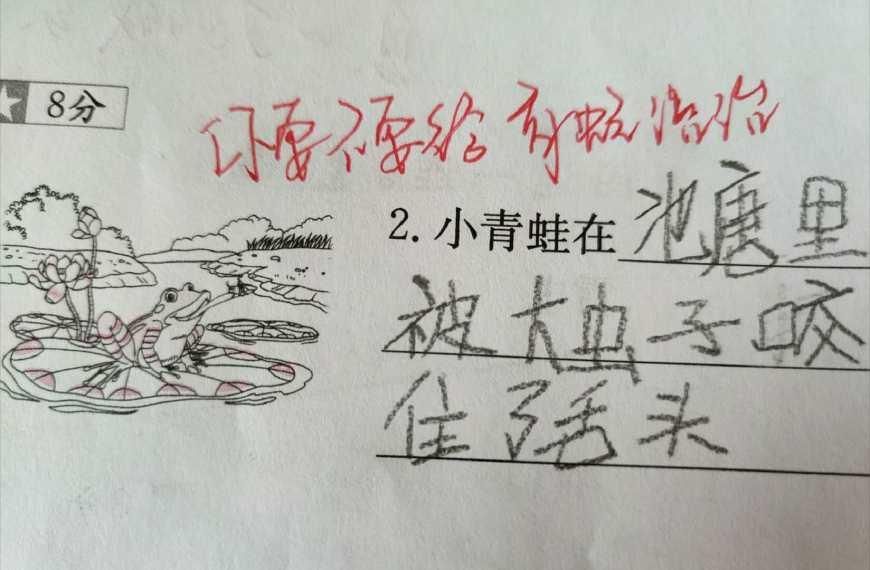 8分
你要不要给青蛙治治
2. 小青蛙在池唐里
被大虫子咬
住了舌头